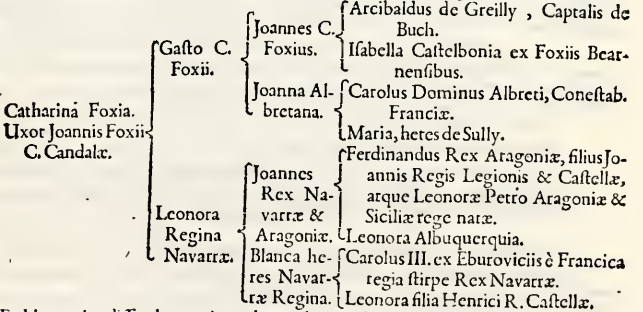 Catharina Foxia.
Uxor Joannis Foxii
C. Candalæ.
Gaſto C.
Foxii.
Leonora
Regina
Navarræ.
Joannes C.
Foxius.
Joanna Al-
bretana.
Joannes
Rex Na-
varræ &
Aragoniæ.
Blanca he-
res Navar-
ræ Regina.
Arcibaldus de Greilly , Captalis de
Buch.
Iſabella Caſtelbonia ex Foxiis Bear-
nenſibus.
Carolus Dominus Albreti, Coneſtab.
Franciæ.
Maria, heres de Sully.
Ferdinandus Rex Aragoniæ, filius Jo-
annis Regis Legionis & Caſtellæ,
arque Leonoræ Petro Aragoniæ &
Siciliæ rege natæ.
Leonora Albuquerquia.
Carolus III. ex Eburoviciis è Francica
regia ſtirpe Rex Navarræ.
Leonora filia Henrici R. Caſtellæ.